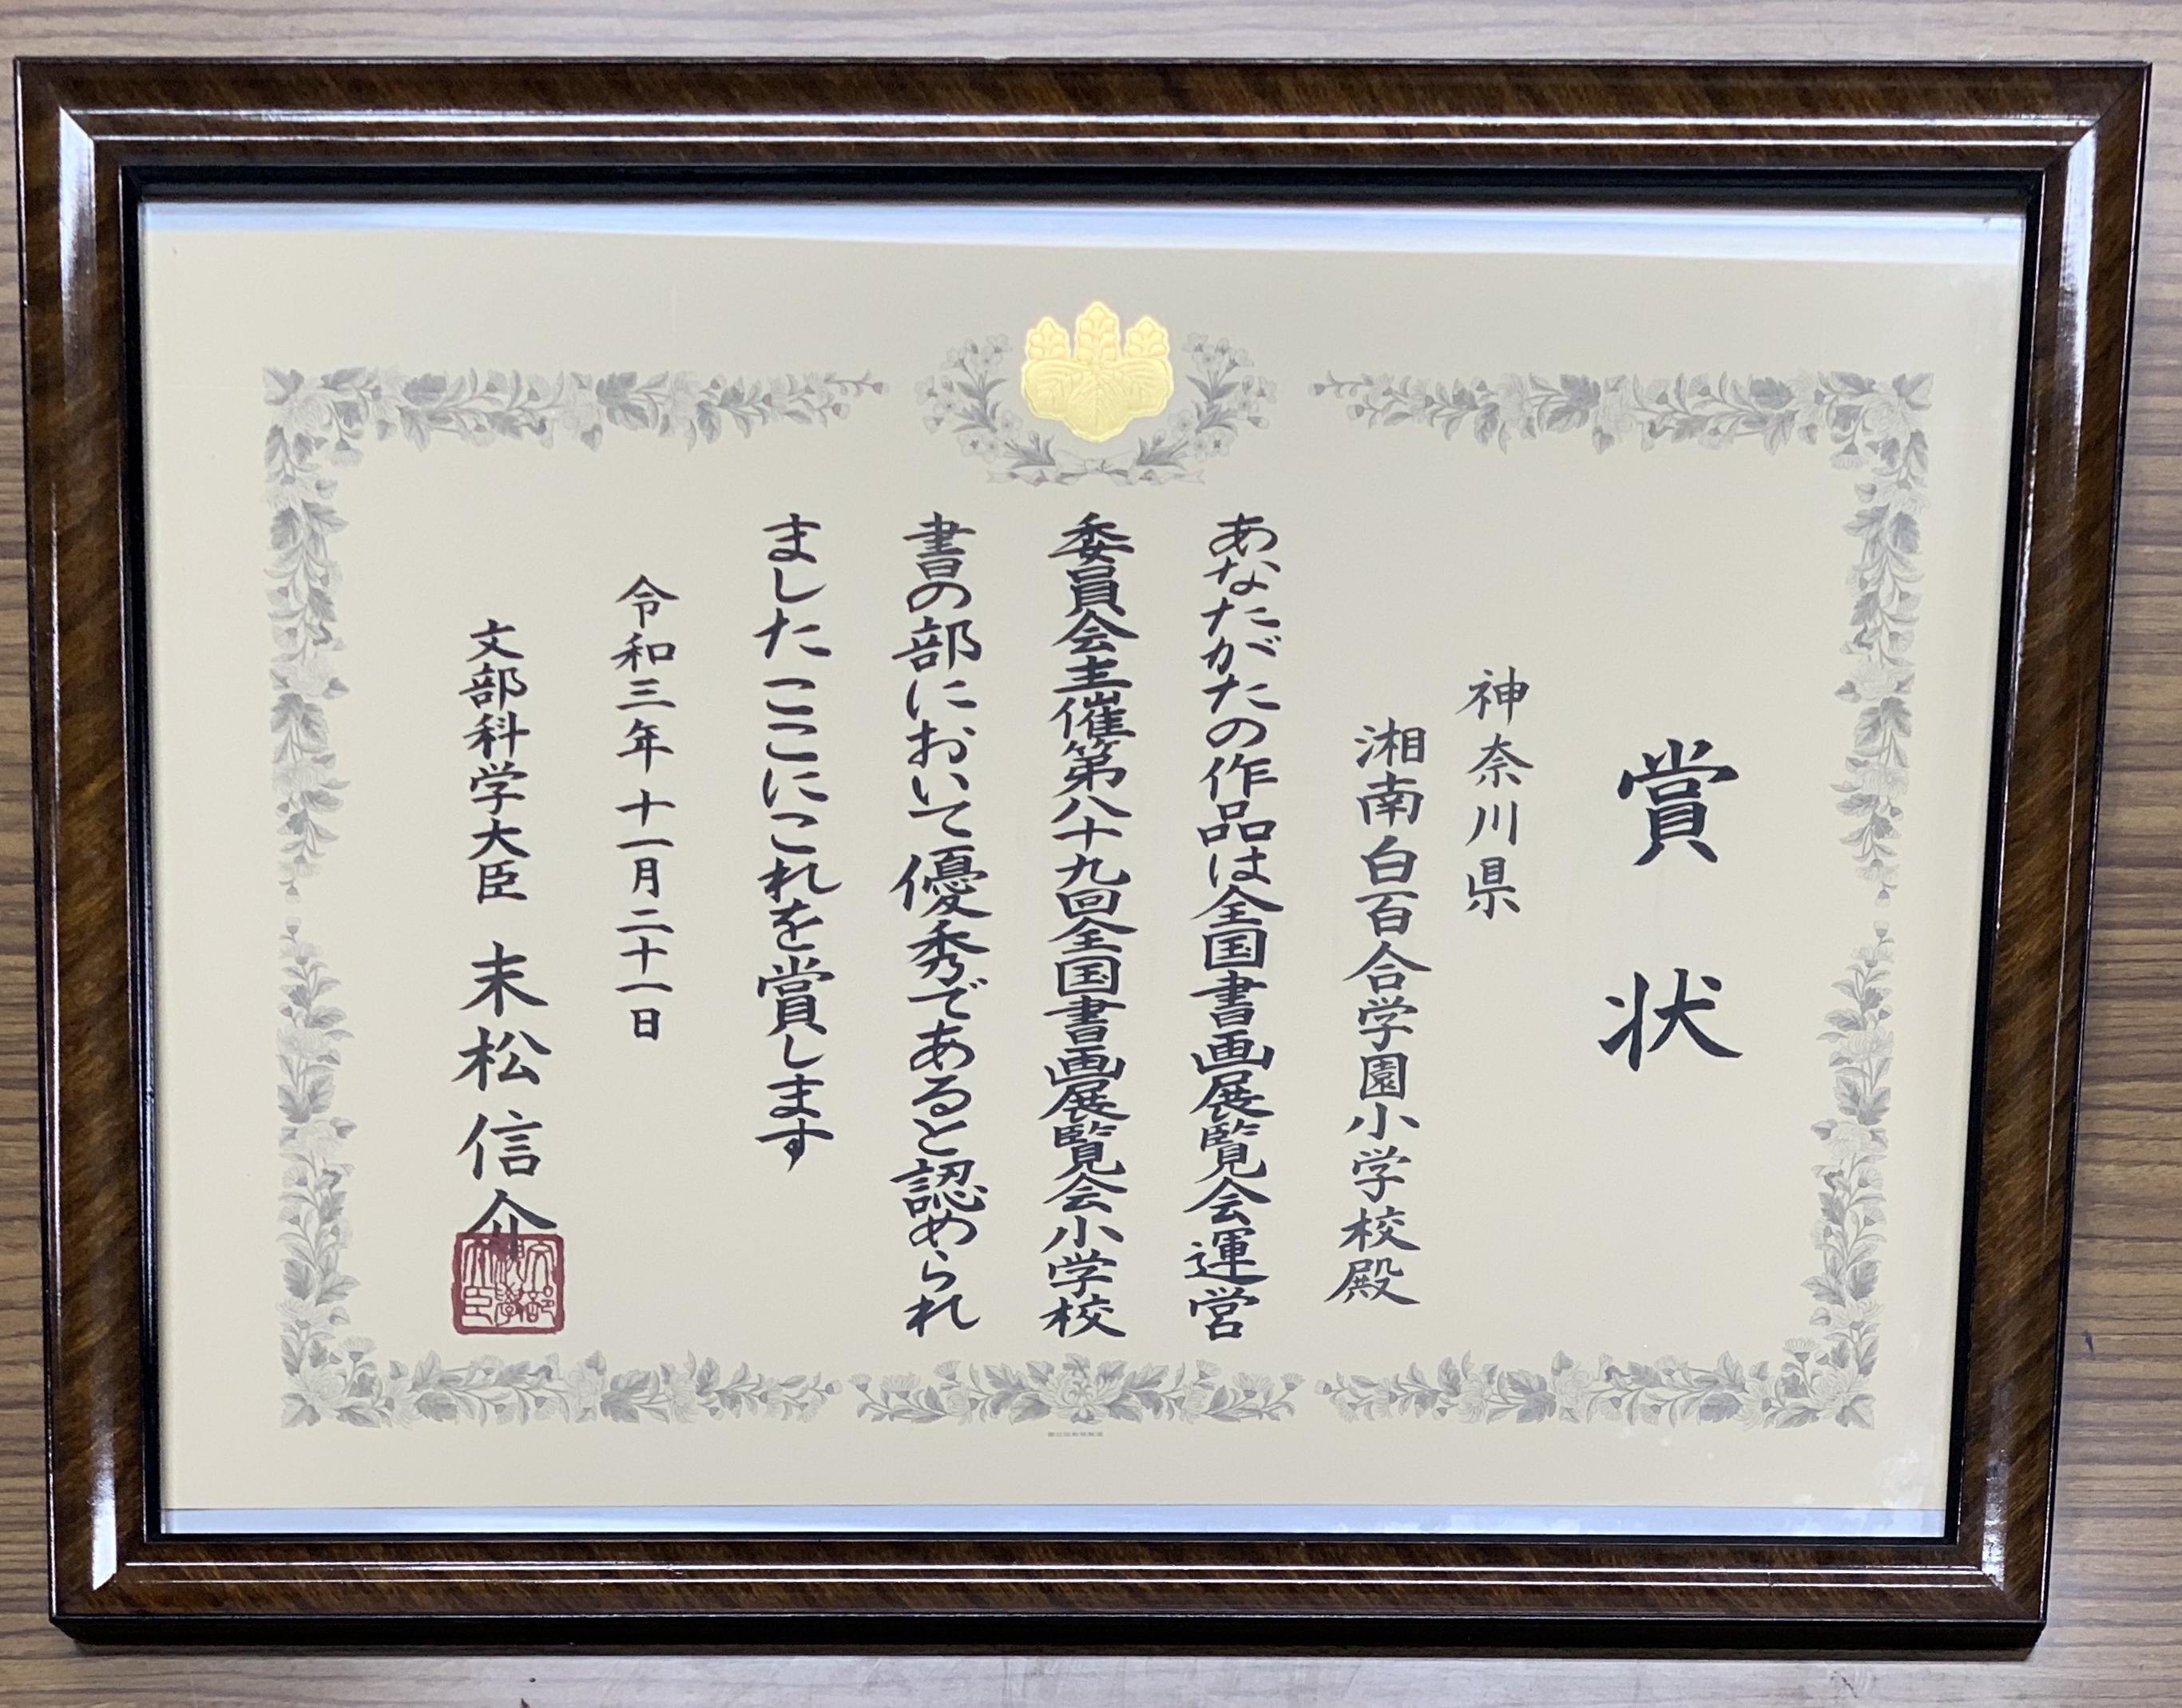 賞状
神奈川県
湘南白百合学園小学校殿
あなたがたの作品は全国書画展覧会運営
委員会主催第八十九回全国書画展覧会小学校
書の部において優秀であると認められ
ましたここにこれを賞します
令和三年十一月二十一日
文部科学大臣 末松信介
文部科学大臣